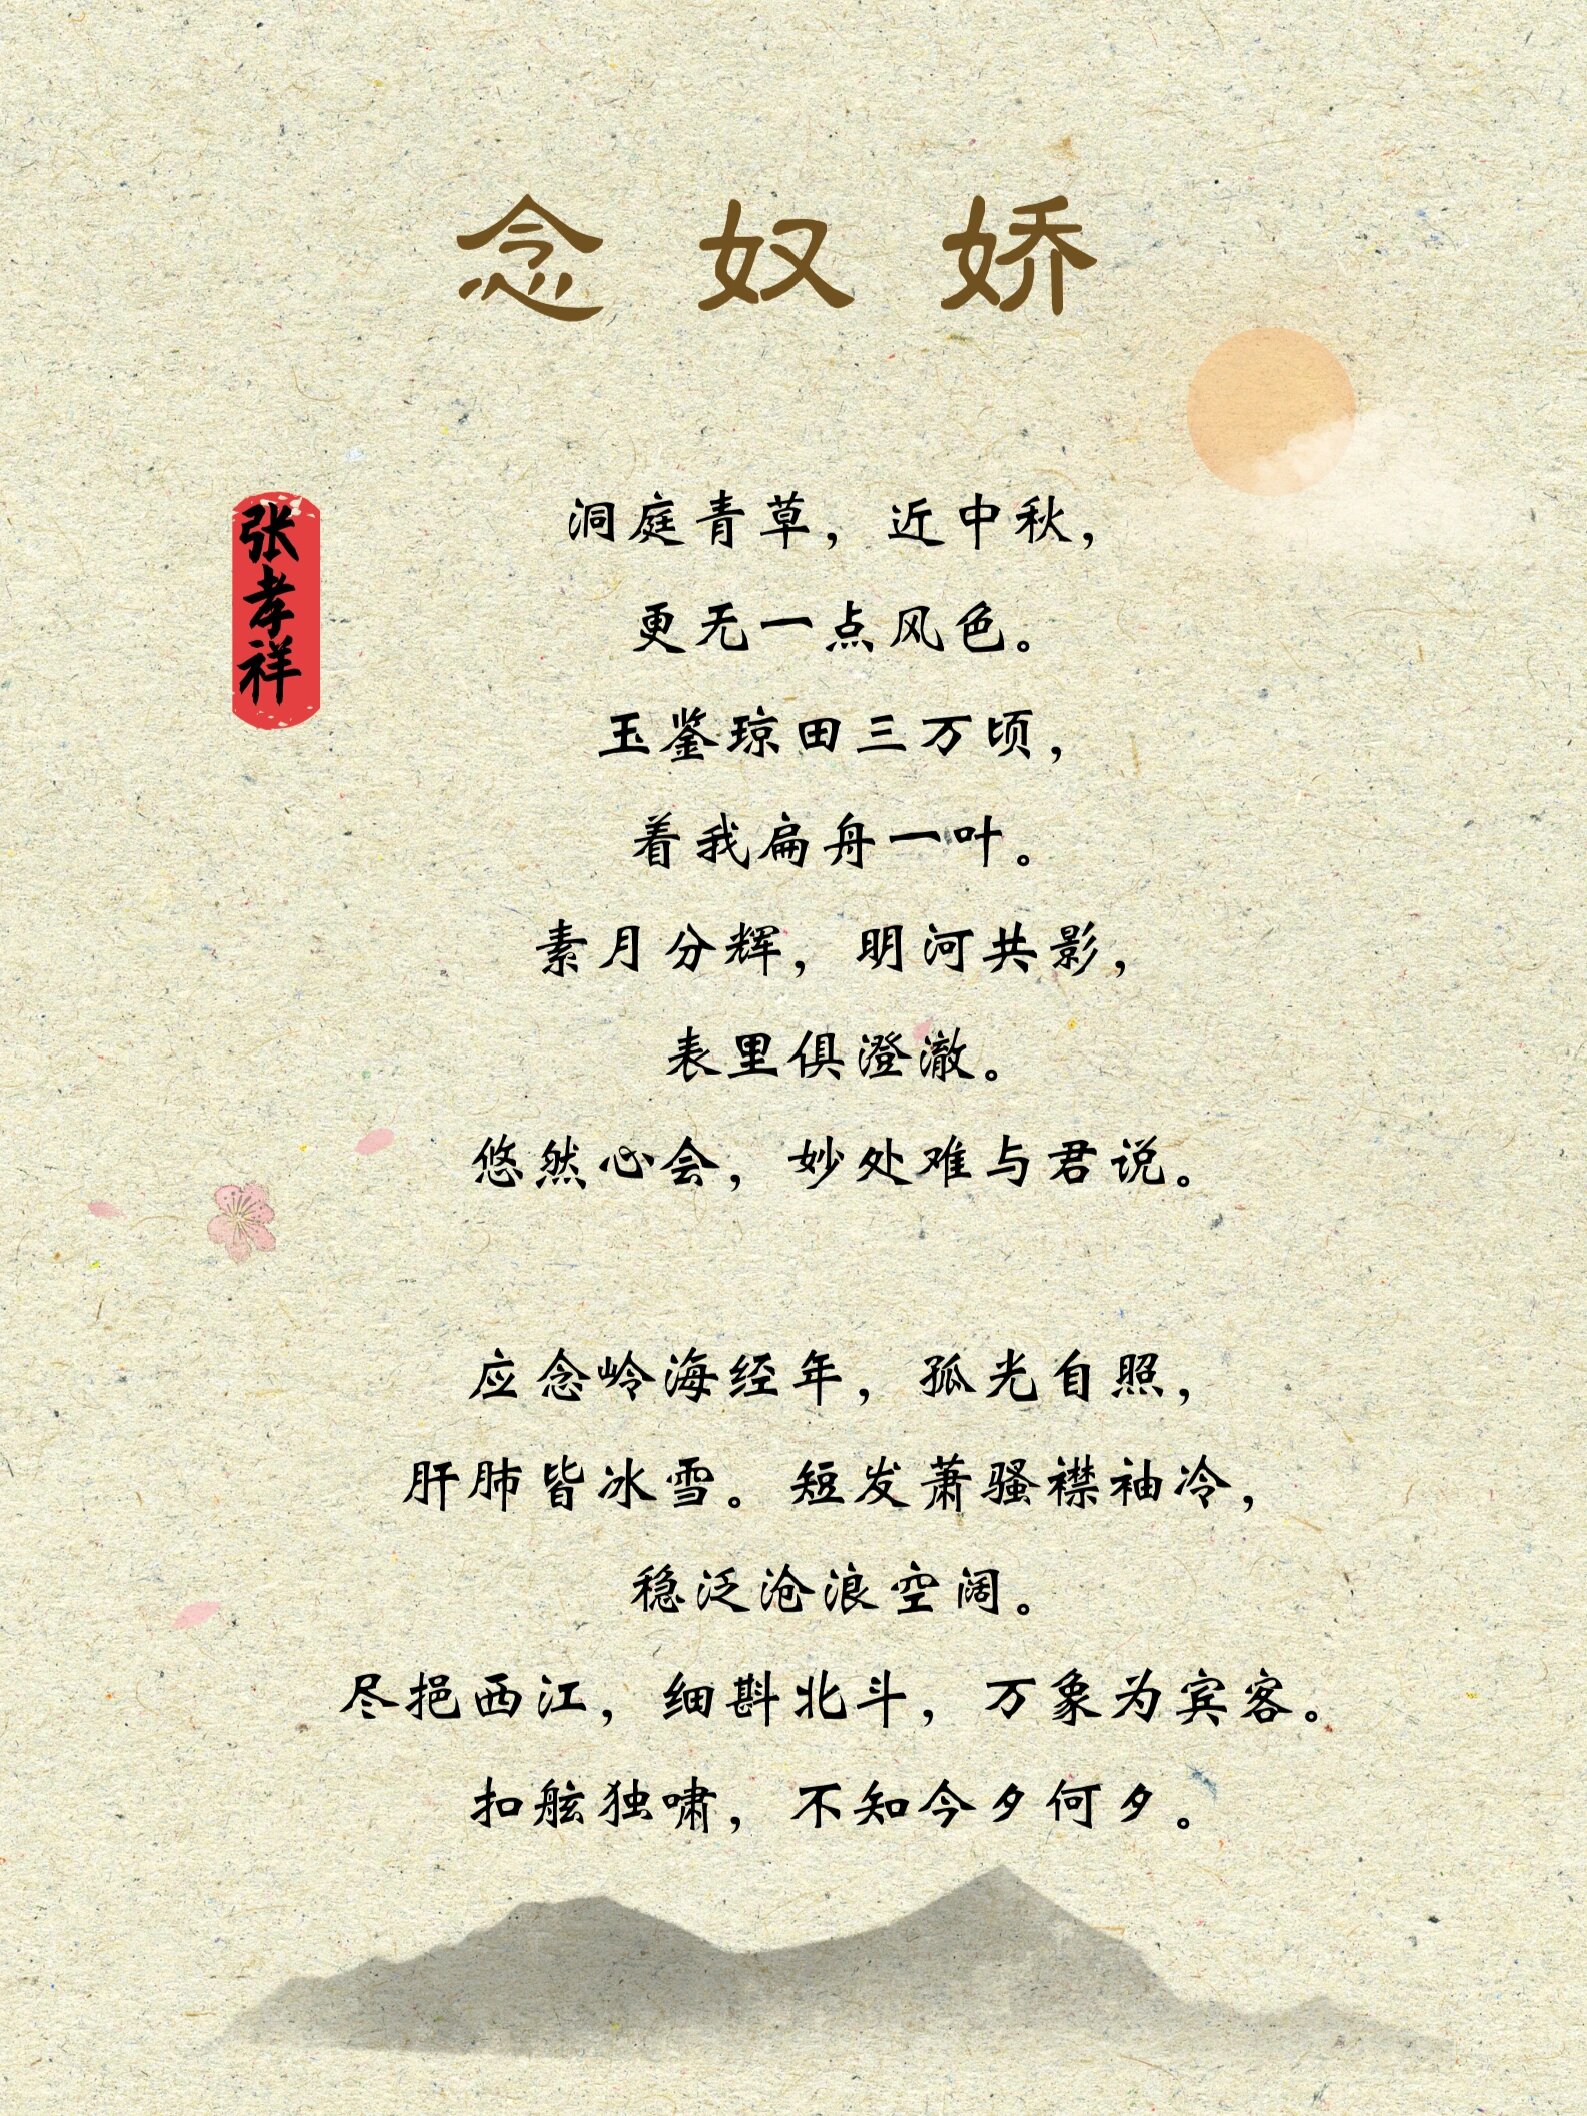 念奴娇
张孝祥
洞庭青草，近中秋，
更无一点风色。
玉鉴琼田三万顷，
着我扁舟一叶。
素月分辉，明河共影，
表里俱澄澈。
悠然心会，妙处难与君说。
应念岭海经年，孤光自照，
肝肺皆冰雪。短发萧骚襟袖冷，
稳泛沧浪空阔。
尽挹西江，细斟北斗，万象为宾客。
扣舷独啸，不知今夕何夕。